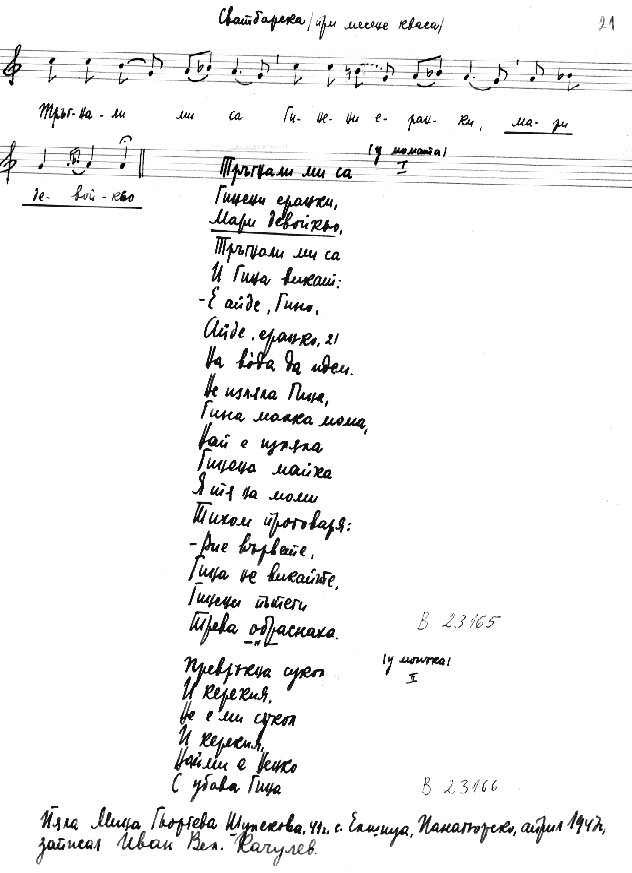 Сватбарска /при месене кваса/
21
Тръг-на-ли ми са Ги-не-ни е-рач-ки, ма-ри
де-вой-кьо
/у момата/
I
Тръгнали ми са
Гинени ерачки,
Мари девойкьо,
Тръгнали ми са
И Гина викат:
- Е айде, Гино,
Айде, ерачко, 2/
На вода да идем.
Не излязла Гина,
Гина малка мома,
Най е излязла
Гинена майка
Я тя на моми
Тихом проговаря:
- Вие вървете,
Гина не викайте,
Гинени пътеки
Трева обраснаха.
В 23165
/у момъка/
II
Превръкна сукол
И керекия,
Не е ми сукол
И керекия,
Найми е Ненко
С убава Гина
В 23166
Пяла Мица Георгева Шулекова, 41 г. с. Елшица, Панагюрско, април 1947 г.,
записал Иван Вел. Качулев.